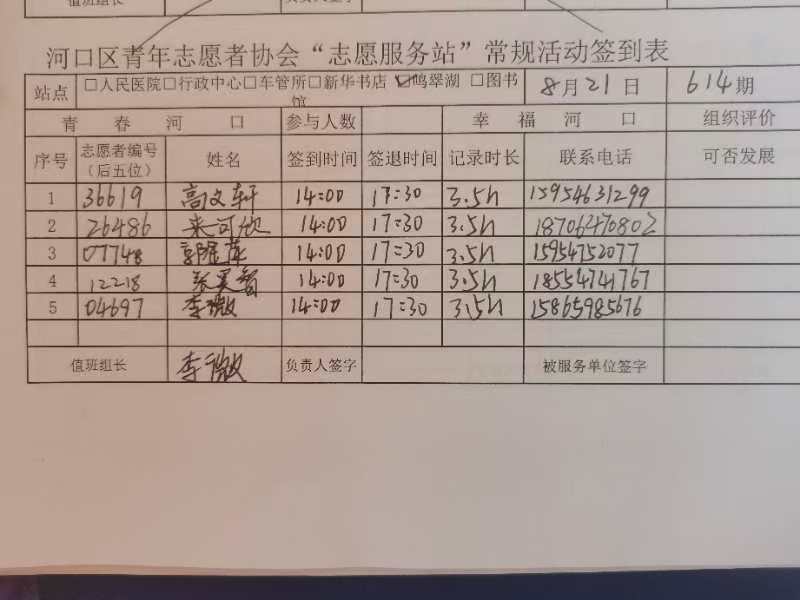 值班组长 负责人签字
河口区青年志愿者协会“志愿服务站”常规活动签到表
站点 □人民医院□行政中心□车管所□新华书店 ☑鸣翠湖 □图书馆 8月21日 614期
青春河口 参与人数 幸福河口 组织评价
序号 志愿者编号（后五位） 姓名 签到时间 签退时间 记录时长 联系电话 可否发展
1 36619 高文轩 14:00 17:30 3.5h 15954631299
2 26486 来河欣 14:00 17:30 3.5h 18706476802
3 07748 14:00 17:30 3.5h 15954752077
4 12218 14:00 17:30 3.5h 18554741767
5 04697 李微 14:00 17:30 3.5h 15865985676
值班组长 李微 负责人签字 被服务单位签字